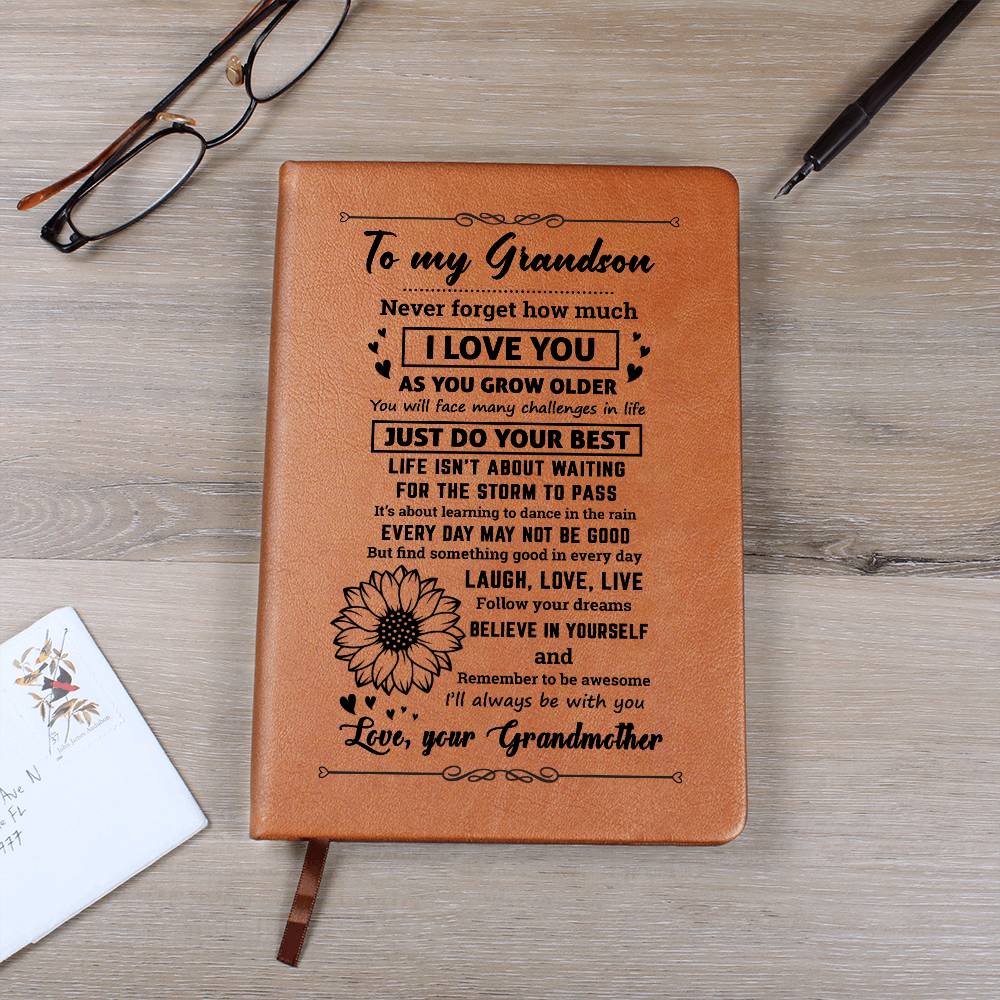 To my Grandson
Never forget how much
I LOVE YOU
AS YOU GROW OLDER
You will face many challenges in life
JUST DO YOUR BEST
LIFE ISN'T ABOUT WAITING
FOR THE STORM TO PASS
It's about learning to dance in the rain
EVERY DAY MAY NOT BE GOOD
But find something good in every day
LAUGH, LOVE, LIVE
Follow your dreams
BELIEVE IN YOURSELF
and
Remember to be awesome
I'll always be with you
Love, your Grandmother
37
John James Audubon
Ave N
FL
977